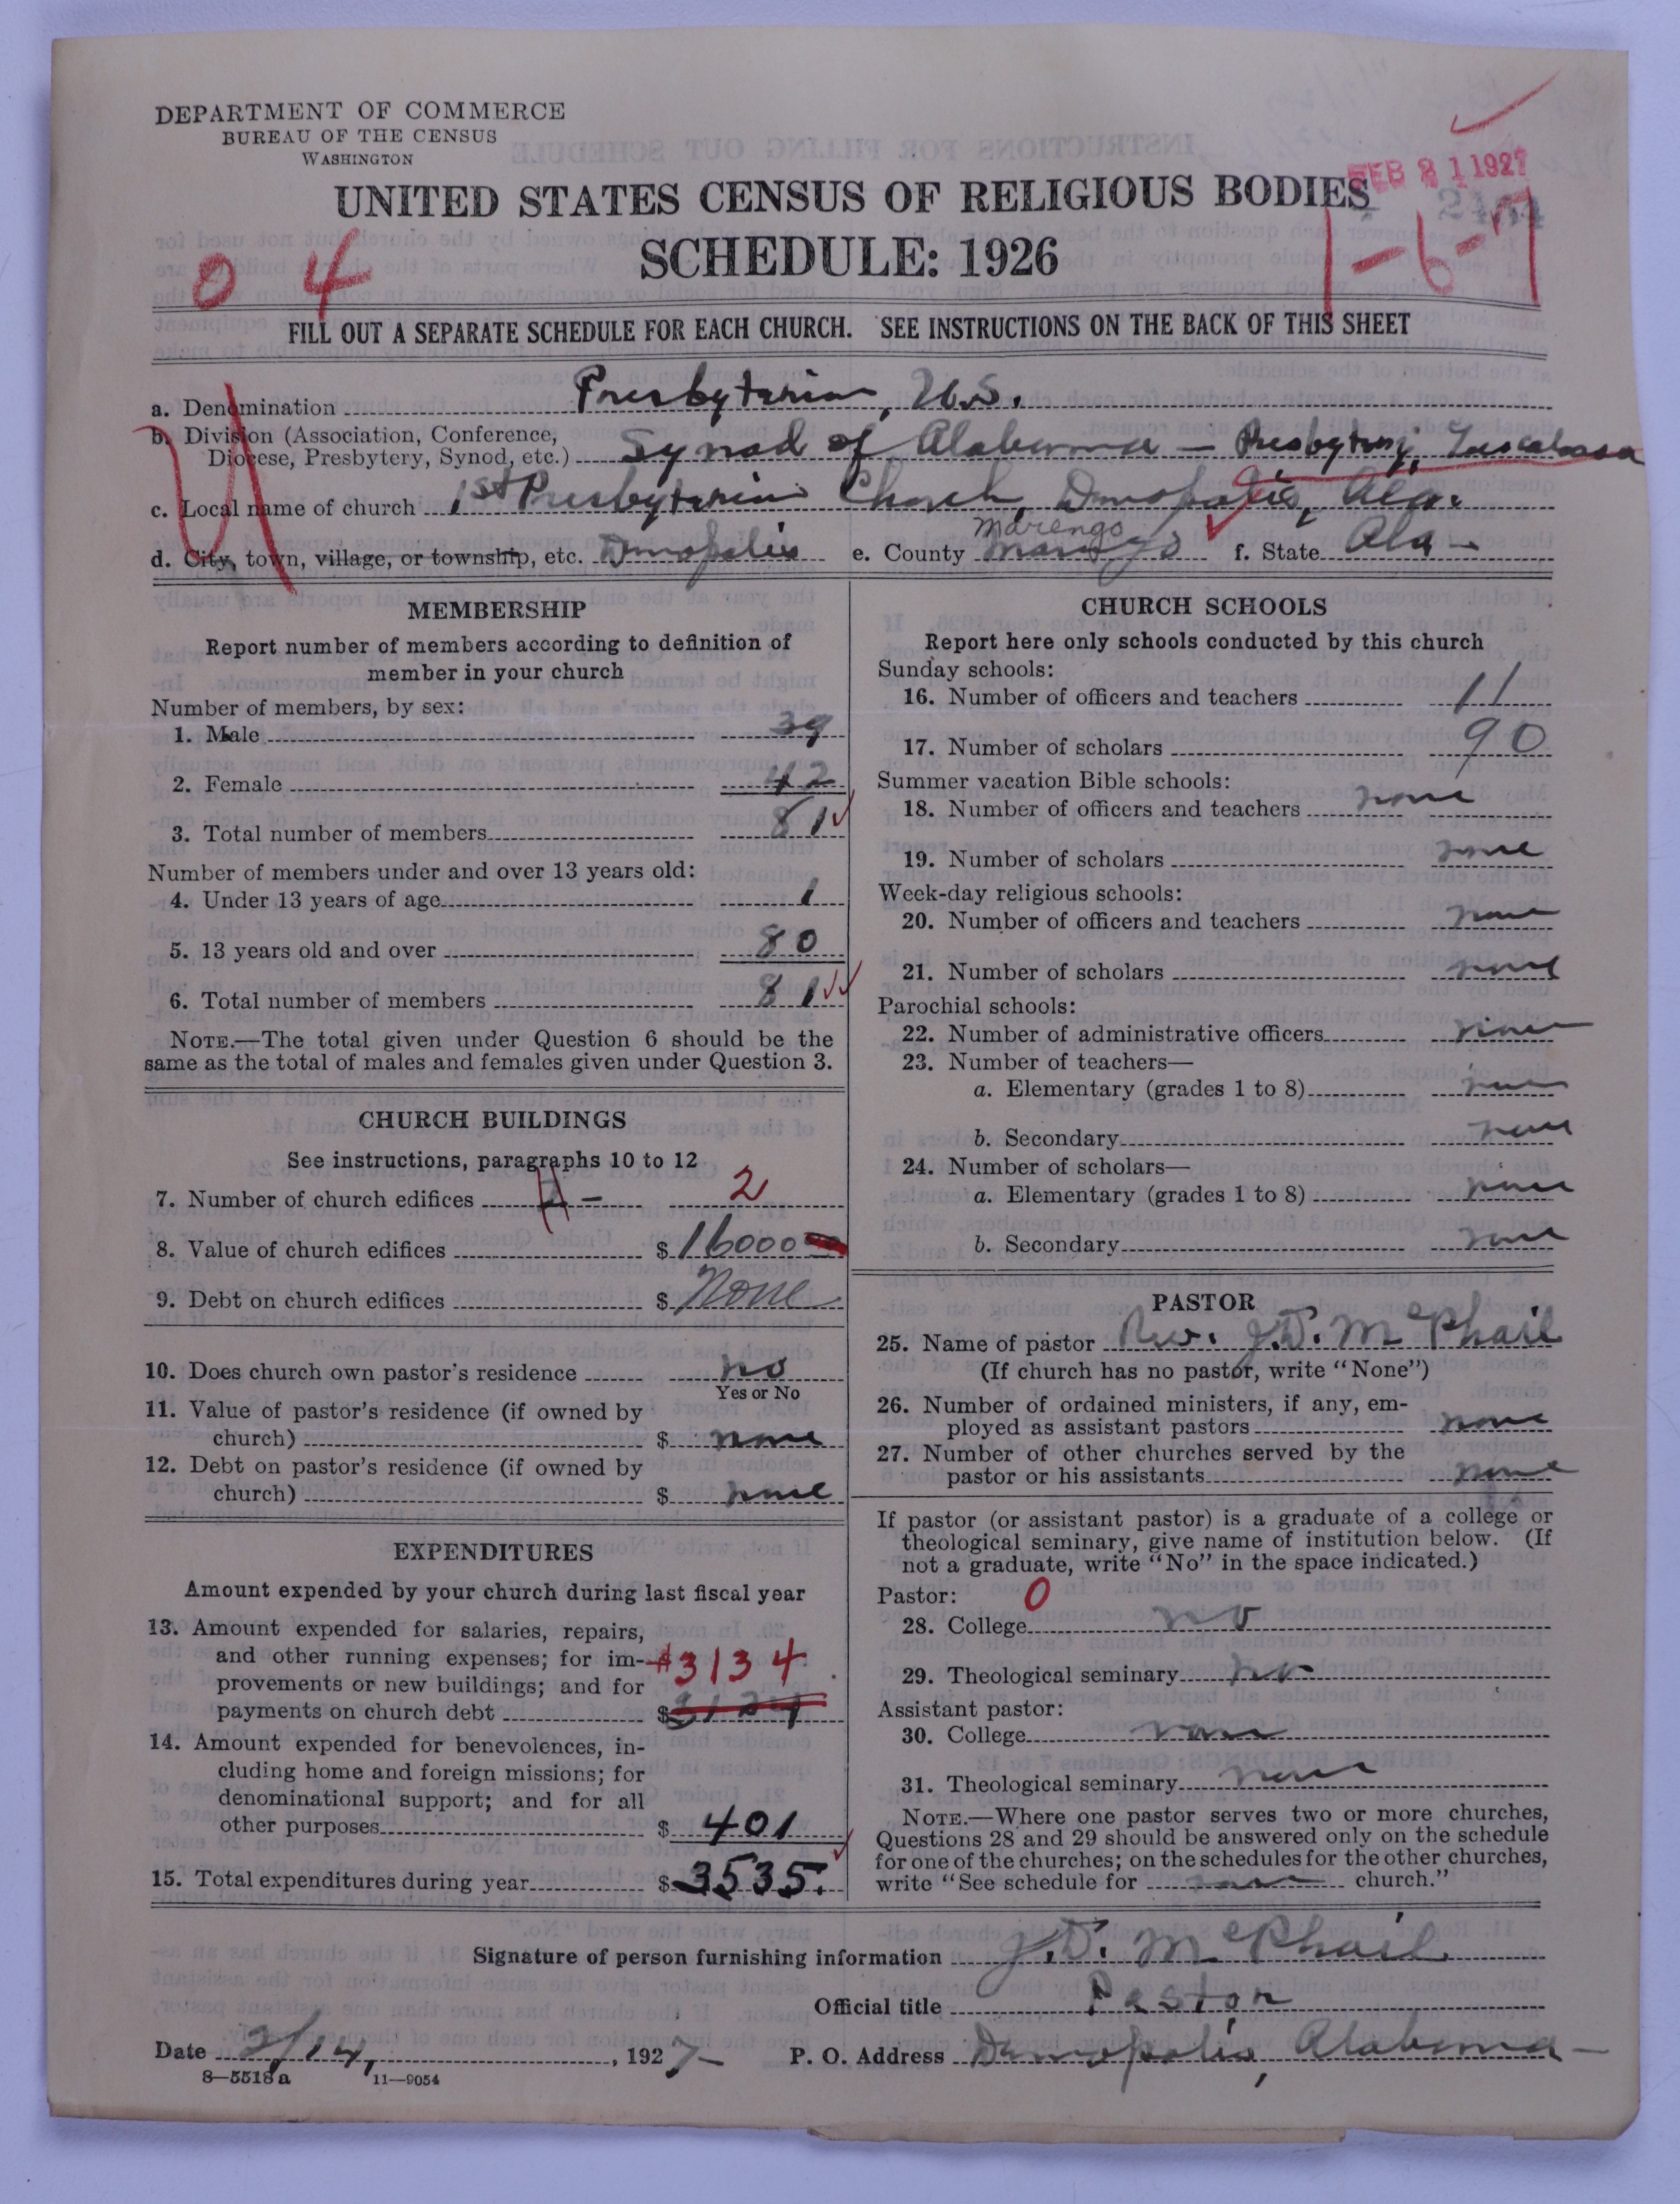 DEPARTMENT OF COMMERCE
BUREAU OF THE CENSUS
WASHINGTON
FEB 21 1927
UNITED STATES CENSUS OF RELIGIOUS BODIES
SCHEDULE: 1926
0 4
1-6-17
FILL OUT A SEPARATE SCHEDULE FOR EACH CHURCH. SEE INSTRUCTIONS ON THE BACK OF THIS SHEET
a. Denomination Presbyterian, U.S.
b. Division (Association, Conference, Diocese, Presbytery, Synod, etc.) Synod of Alabama — Presbytery, Tuscaloosa
c. Local name of church 1st Presbyterian Church, Demopolis, Ala.
d. City, town, village, or township, etc. Demopolis e. County Marengo Marengo f. State Ala-
MEMBERSHIP
Report number of members according to definition of
member in your church
Number of members, by sex:
1. Male 39
2. Female 42
3. Total number of members 81
Number of members under and over 13 years old:
4. Under 13 years of age 1
5. 13 years old and over 80
6. Total number of members 81
NOTE.—The total given under Question 6 should be the
same as the total of males and females given under Question 3.
CHURCH BUILDINGS
See instructions, paragraphs 10 to 12
7. Number of church edifices 2
8. Value of church edifices $ 16000
9. Debt on church edifices $ None
10. Does church own pastor's residence no
Yes or No
11. Value of pastor's residence (if owned by
church) $ none
12. Debt on pastor's residence (if owned by
church) $ none
EXPENDITURES
Amount expended by your church during last fiscal year
13. Amount expended for salaries, repairs,
and other running expenses; for im-
provements or new buildings; and for
payments on church debt $ 3134
14. Amount expended for benevolences, in-
cluding home and foreign missions; for
denominational support; and for all
other purposes $ 401
15. Total expenditures during year $ 3535.
CHURCH SCHOOLS
Report here only schools conducted by this church
Sunday schools:
16. Number of officers and teachers 11
17. Number of scholars 90
Summer vacation Bible schools:
18. Number of officers and teachers none
19. Number of scholars none
Week-day religious schools:
20. Number of officers and teachers none
21. Number of scholars none
Parochial schools:
22. Number of administrative officers none
23. Number of teachers—
a. Elementary (grades 1 to 8) none
b. Secondary none
24. Number of scholars—
a. Elementary (grades 1 to 8) none
b. Secondary none
PASTOR
25. Name of pastor Rev. J.D. McPhail
(If church has no pastor, write "None")
26. Number of ordained ministers, if any, em-
ployed as assistant pastors none
27. Number of other churches served by the
pastor or his assistants none
If pastor (or assistant pastor) is a graduate of a college or
theological seminary, give name of institution below. (If
not a graduate, write "No" in the space indicated.)
Pastor: 0
28. College no
29. Theological seminary no
Assistant pastor:
30. College none
31. Theological seminary none
NOTE.—Where one pastor serves two or more churches,
Questions 28 and 29 should be answered only on the schedule
for one of the churches; on the schedules for the other churches,
write "See schedule for none church."
Signature of person furnishing information J.D. McPhail
Official title Pastor
Date 2/14, 1927- P. O. Address Demopolis, Alabama-
8-5518a 11-9054